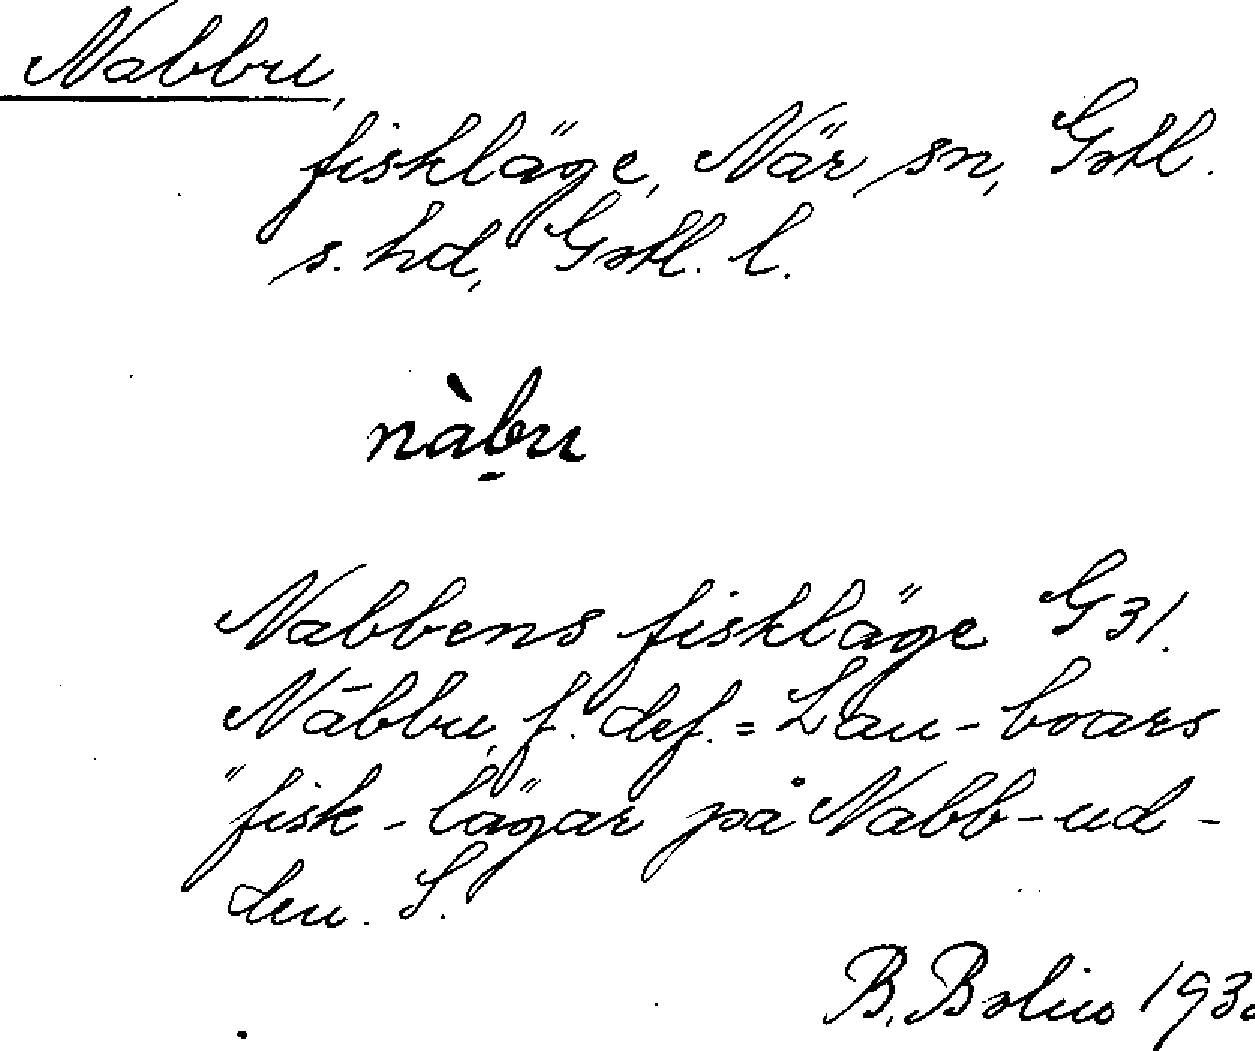 Nabbu,
fiskläge, När sn, Gotl.
s. hd, Gotl. l.
nàb̠u
Nabbens fiskläge G 31.
Nābbu, f. def. = Lau-boars
"fisk-lägar på Nabb-ud-
den. S.
B. Bolin 193